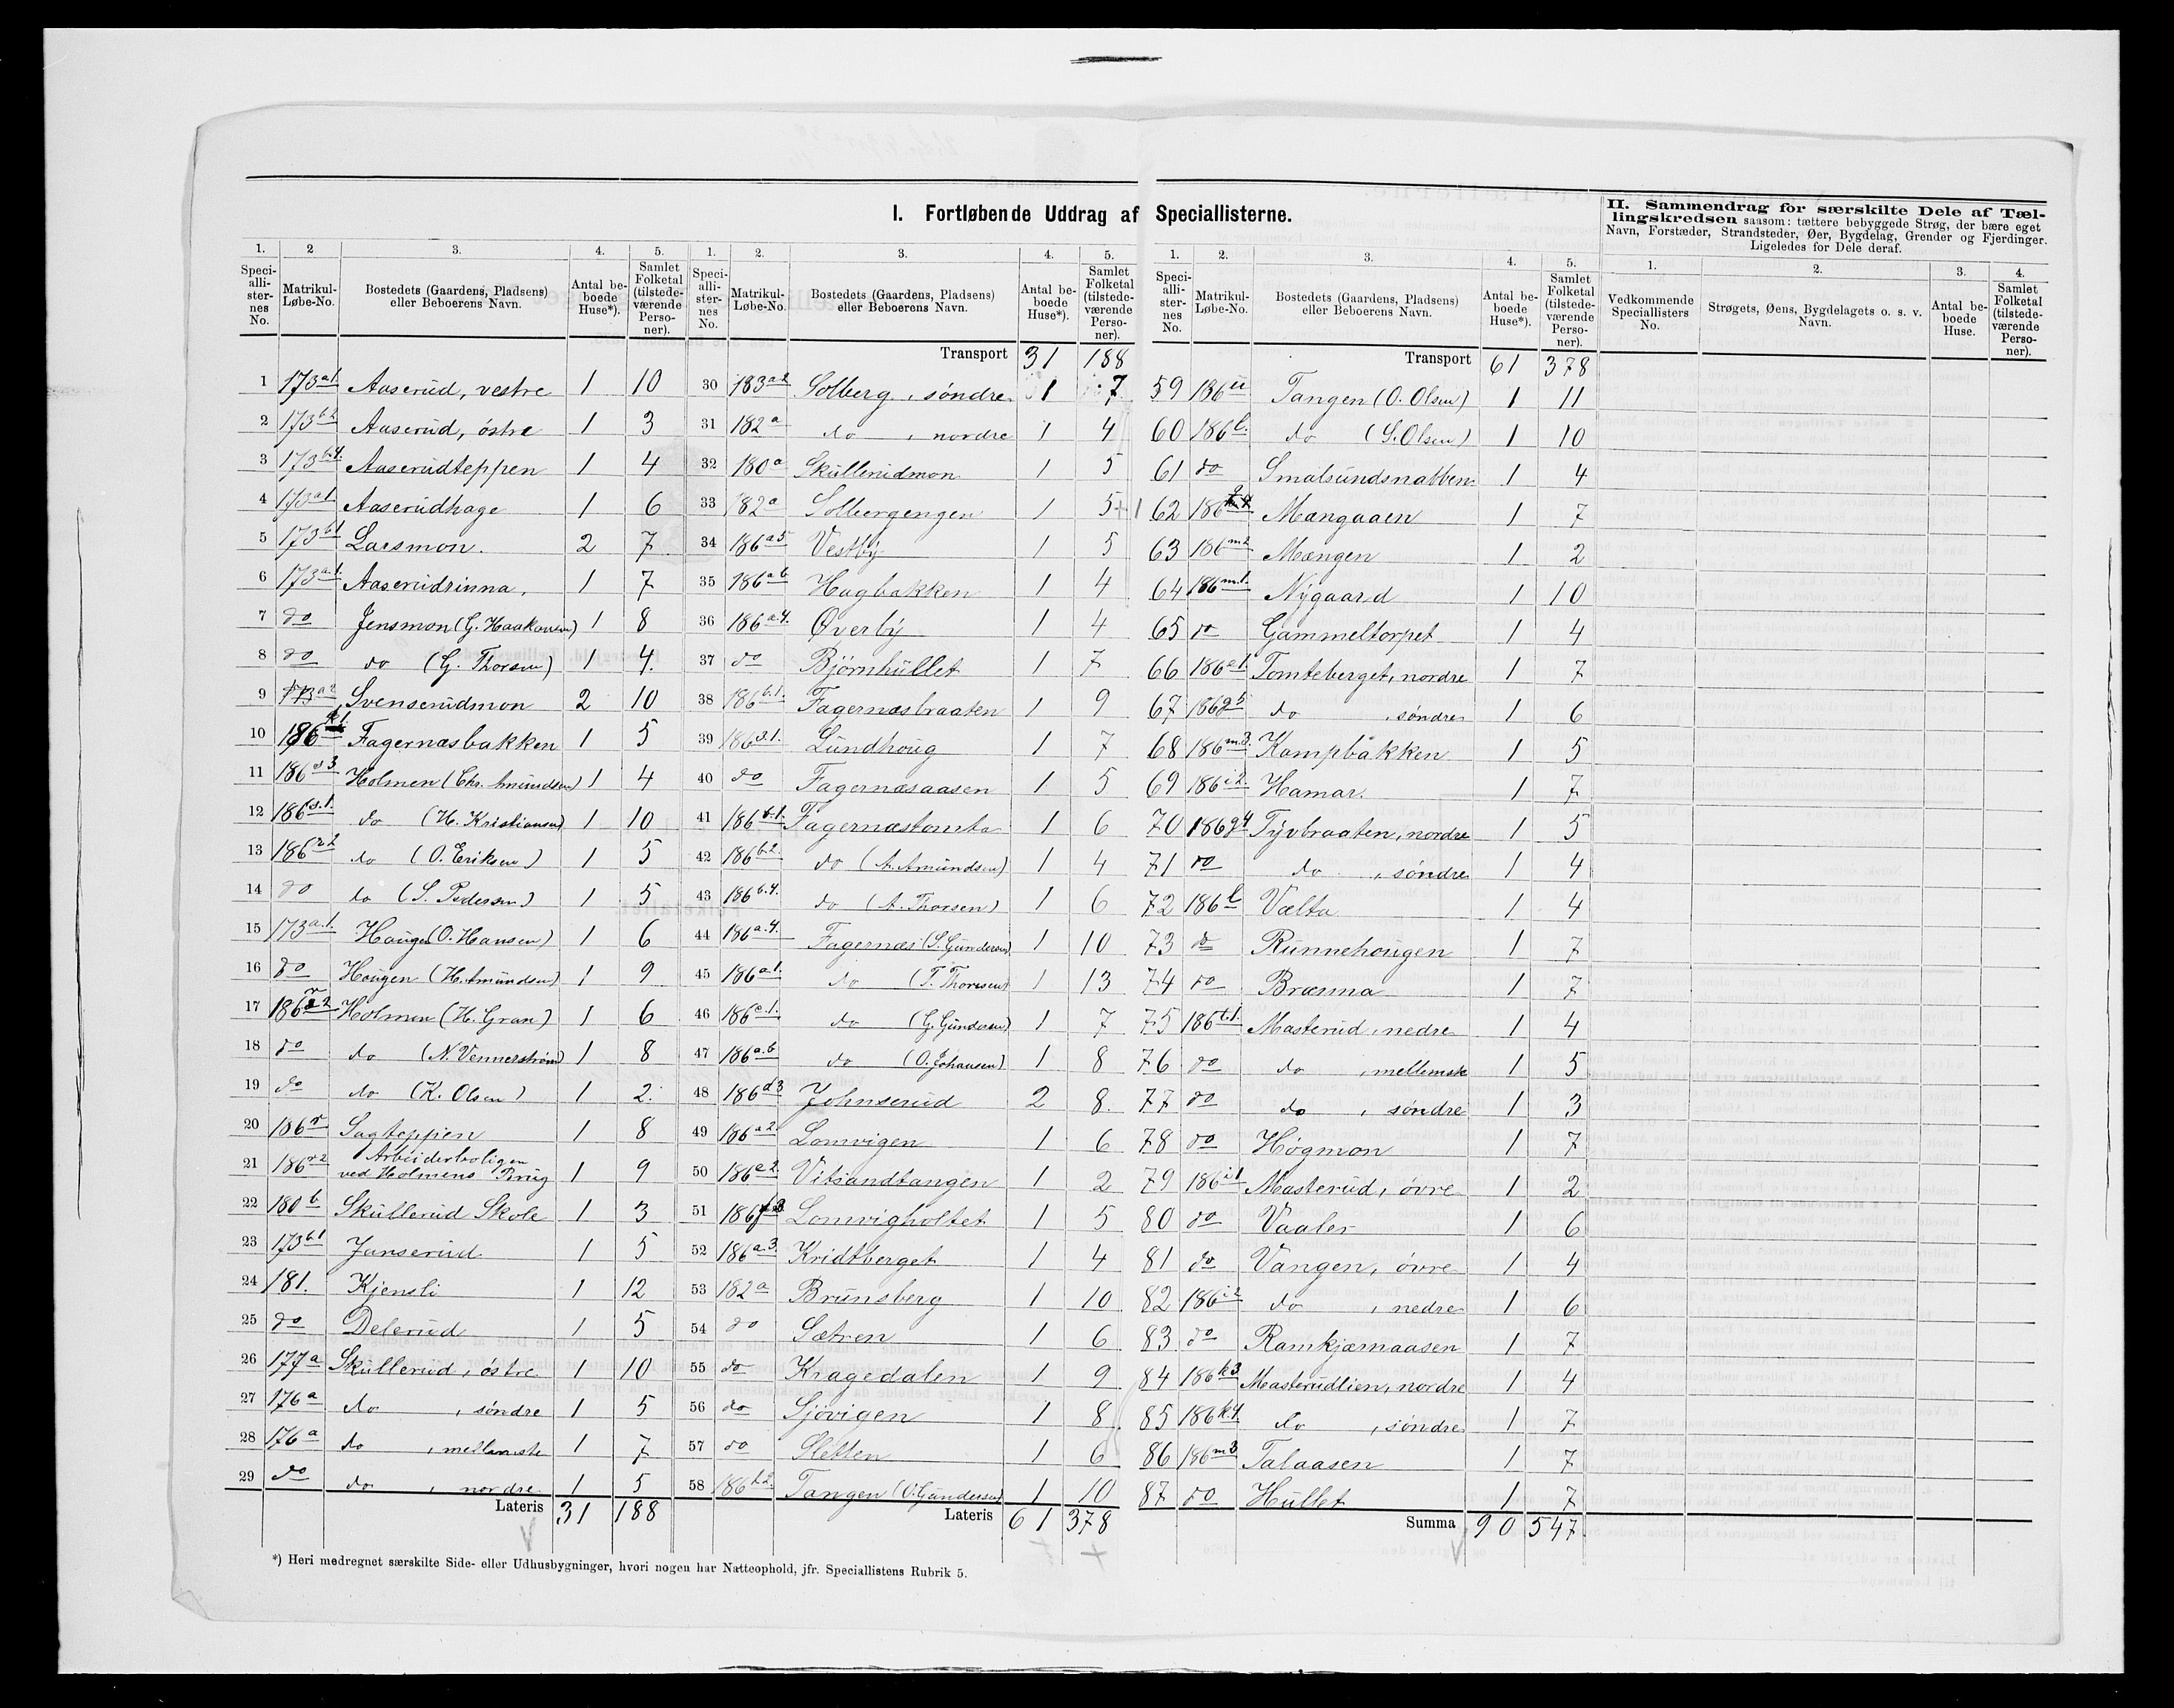 I. Fortløbende Uddrag af Speciallisterne.
1. 2 3. 4. 5.
Speci-alli-ster-nes No. Matrikul-Løbe-No. Bostedets (Gaardens, Pladsens) eller Beboerens Navn. Antal be-boede Huse*). Samlet Folketal (tilstede-værende Perso-ner).
1 173a1 Aaserud, vestre 1 10
2 173b2 Aaserud, østre 1 3
3 173b4. Aaserudteppen 1 4
4 173a1 Aaserudhage 1 6
5 173b1 Larsmon. 2 7
6 173a.1. Aaserudrinna, 1 7
7 do Jensmon (G. Haakonsen) 1 8
8 do do (G. Thorsen) 1 4.
9 173a2 Svenserudmon 2 10
10 186 Fagernæsbakken 1 5
11 186s3. Holmen (Chr. Amundsen) 1 4
12 186s.1. do (H. Kristiansen) 1 10
13 186r2 do (O. Eriksen) 1 5
14 do do (S. Pedersen) 1 5
15 173a.1. Haugen (O. Hansen) 1 6
16 do Haugen (H. Amundsen) 1 9
17 186r2 Holmen (H. Gran) 1 6
18 do do (N. Vennerstrøm) 1 8
19 do do (K. Olsen) 1 2.
20 186r Sagteppen 1 8
21 186r2 Arbeiderboligen ved Holmens Brug 1 9
22 180b Skullerud Skole 1 3
23 173b1 Janserud 1 5
24 181. Kjensli 1 12
25 do Delerud 1 5
26 177a Skullerud, østre 1 10
27 176a do , søndre 1 5
28 176a do , mellemste 1 7
29 do do , nordre 1 5
Lateris 31 188
1. 2. 3. 4. 5.
Speci-alli-ster-nes No. Matrikul-Løbe-No. Bostedets (Gaardens, Pladsens) eller Beboerens Navn. Antal be-boede Huse*). Samlet Folketal (tilstede-værende Perso-ner).
Transport 31 188
30 183a2 Solberg, søndre 1 7
31 182a do , nordre 1 4
32 180a Skullerudmon 1 5
33 182a Solbergengen 1 5+1
34 186a5 Vestby 1 5
35 186a6 Hagbakken 1 4
36 186a4. Øverby 1 4
37 do Bjørnhullet 1 7
38 186b.1. Fagernæsbraaten 1 9
39 186d.1. Lundhoug 1 7
40 do Fagernæsaasen 1 5
41 186b.1. Fagernæstomta 1 6
42 186b2. do (A. Amundsen) 1 4
43 186b.4. do (A. Thorsen) 1 6
44 186a.4. Fagernæs (S. Gundersen) 1 10
45 186a1. do (T. Thoresen) 1 13
46 186c.1. do (G. Gundersen) 1 7
47 186a.6 do (O. Johansen) 1 8
48 186d3 Johnserud 2 8.
49 186a2. Lomvigen 1 6
50 186e2. Vitsandtangen 1 2
51 186 Lomvigholtet 1 5
52 186a.3. Kridtberget 1 4
53 182a Brunsberg 1 10
54 do Sætren 1 6
55 do Kragedalen 1 9
56 do Sjøvigen 1 8
57 do Sletten 1 6
58 186h2. Tangen (O. Gundersen) 1 10
Lateris 61 378
1. 2. 3. 4. 5.
Speci-alli-ster-nes No. Matrikul-Løbe-No. Bostedets (Gaardens, Pladsens) eller Beboerens Navn. Antal be-boede Huse*). Samlet Folketal (tilstede-værende Perso-ner).
Transport 61 378
59 186 Tangen (O. Olsen) 1 11
60 186l. do (S. Olsen) 1 10
61 do Smalsundsnabben 1 4
62 186 Mangaaen 1 7
63 186m2 Mængen 1 2
64 186m.1. Nygaard 1 10
65 do Gammeltorpet 1 4
66 186e1. Tomteberget, nordre 1 7
67 186g5 do , søndre 1 6
68 186m3. Kampbakken 1 5
69 186i2. Hamar. 1 7
70 186g4 Tyvbraaten, nordre 1 5
71 do do , søndre 1 4
72 186l Vælta 1 4
73 do Runnehougen 1 7
74 do Brænna 1 7
75 186t.1 Masterud, nedre 1 4
76 do do , mellemste 1 5
77 do do , søndre 1 3
78 do Høgmon 1 7
79 186i1 Masterud, øvre 1 2
80 do Vaaler 1 6
81 do Vangen, øvre 1 4
82 186i2 do , nedre 1 6
83 do Ramkjærnaasen 1 7
84 186k3 Masterudlien, nordre 1 4
85 186k4. do , søndre 1 7
86 186m3 Talaasen 1 7
87 do Hullet 1 7
Summa 90 547
II. Sammendrag for særskilte Dele af Tæl-
lingskredsen saasom: tættere bebyggede Strøg, der bære eget
Navn, Forstæder, Strandsteder, Øer, Bygdelag, Grender og Fjerdinger.
Ligeledes for Dele deraf.
1. 2. 3. 4.
Vedkommende Speciallisters No. Strøgets, Øens, Bygdelagets o. s. v. Navn. Antal be-boede Huse. Samlet Folketal (tilstede-værende Perso-ner).
*) Heri medregnet særskilte Side- eller Udhusbygninger, hvori nogen har Natteophold, jfr. Speciallistens Rubrik 5.